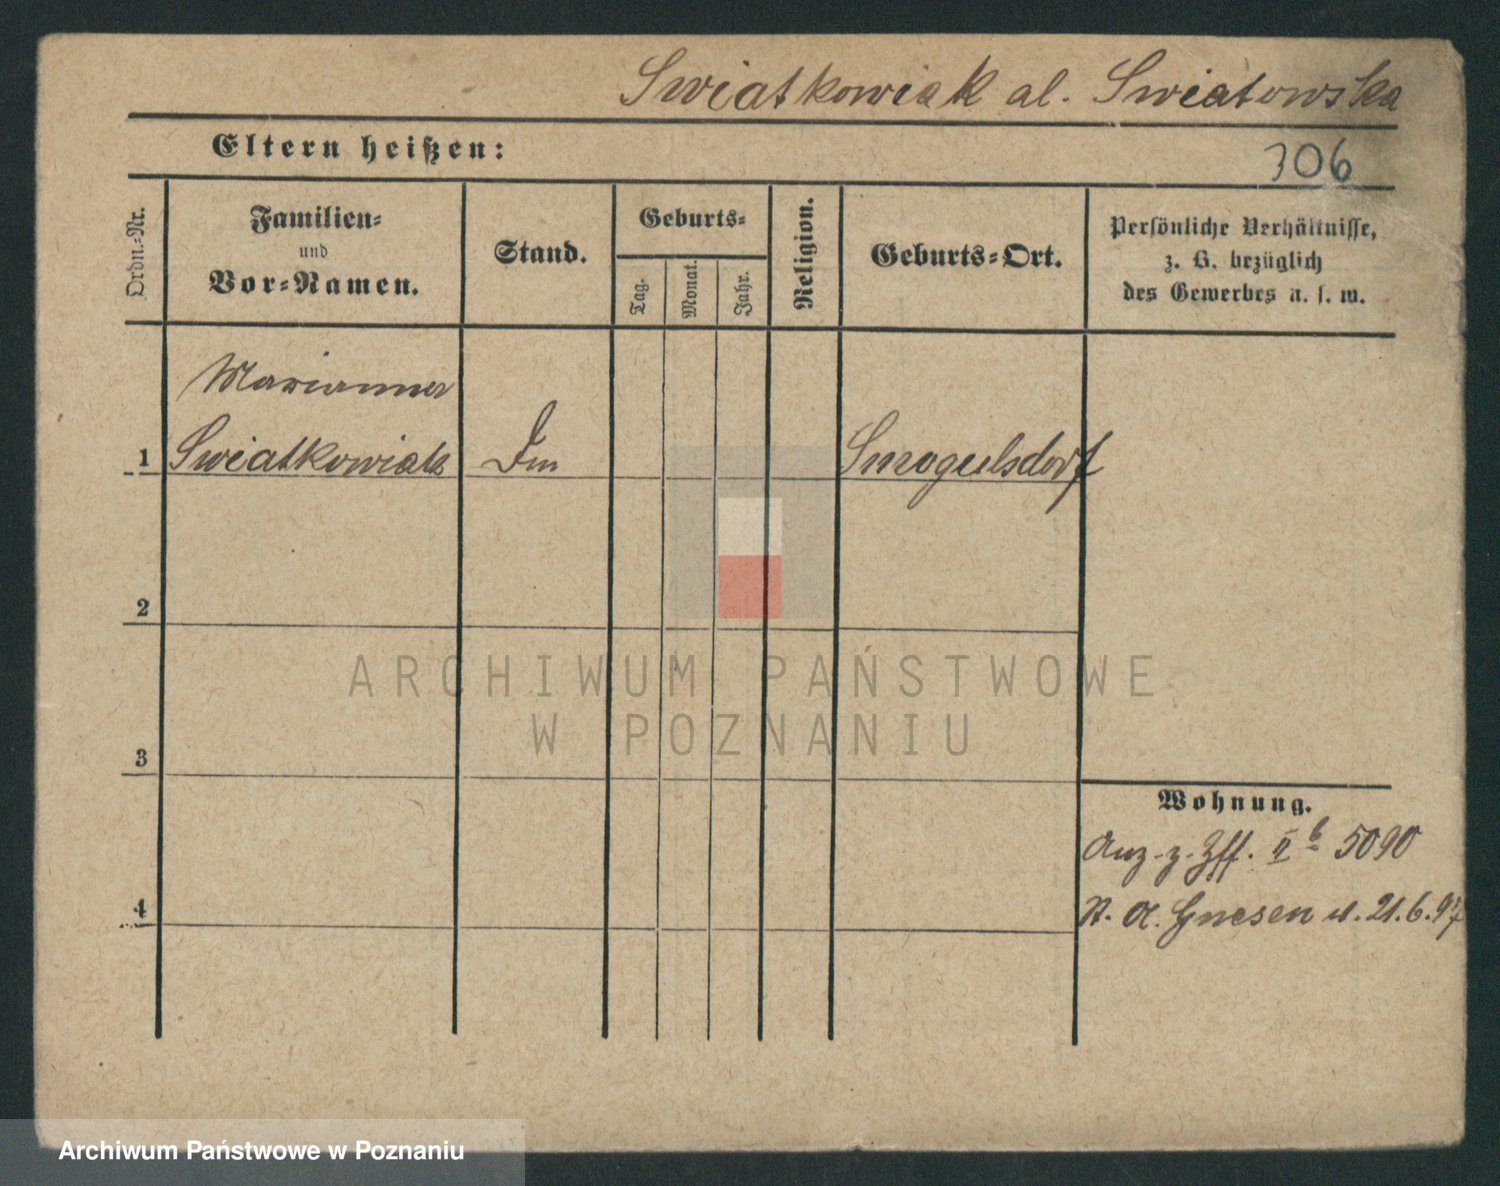 Swiatkowiak al. Swiatowska
Eltern heißen:
306
Ordn.-Nr.
Familien-
und
Vor-Namen.
Stand.
Geburts-
Tag.
Monat.
Jahr.
Religion.
Geburts-Ort.
Persönliche Verhältnisse,
z. B. bezüglich
des Gewerbes u. s. w.
Marianna
1 Swiatkowiak Smogulsdorf
2
3
4
Wohnung.
Anz. z. Zff. II b 5090
St. A. Gnesen v. 21.6.97
ARCHIWUM PAŃSTWOWE
W POZNANIU
Archiwum Państwowe w Poznaniu